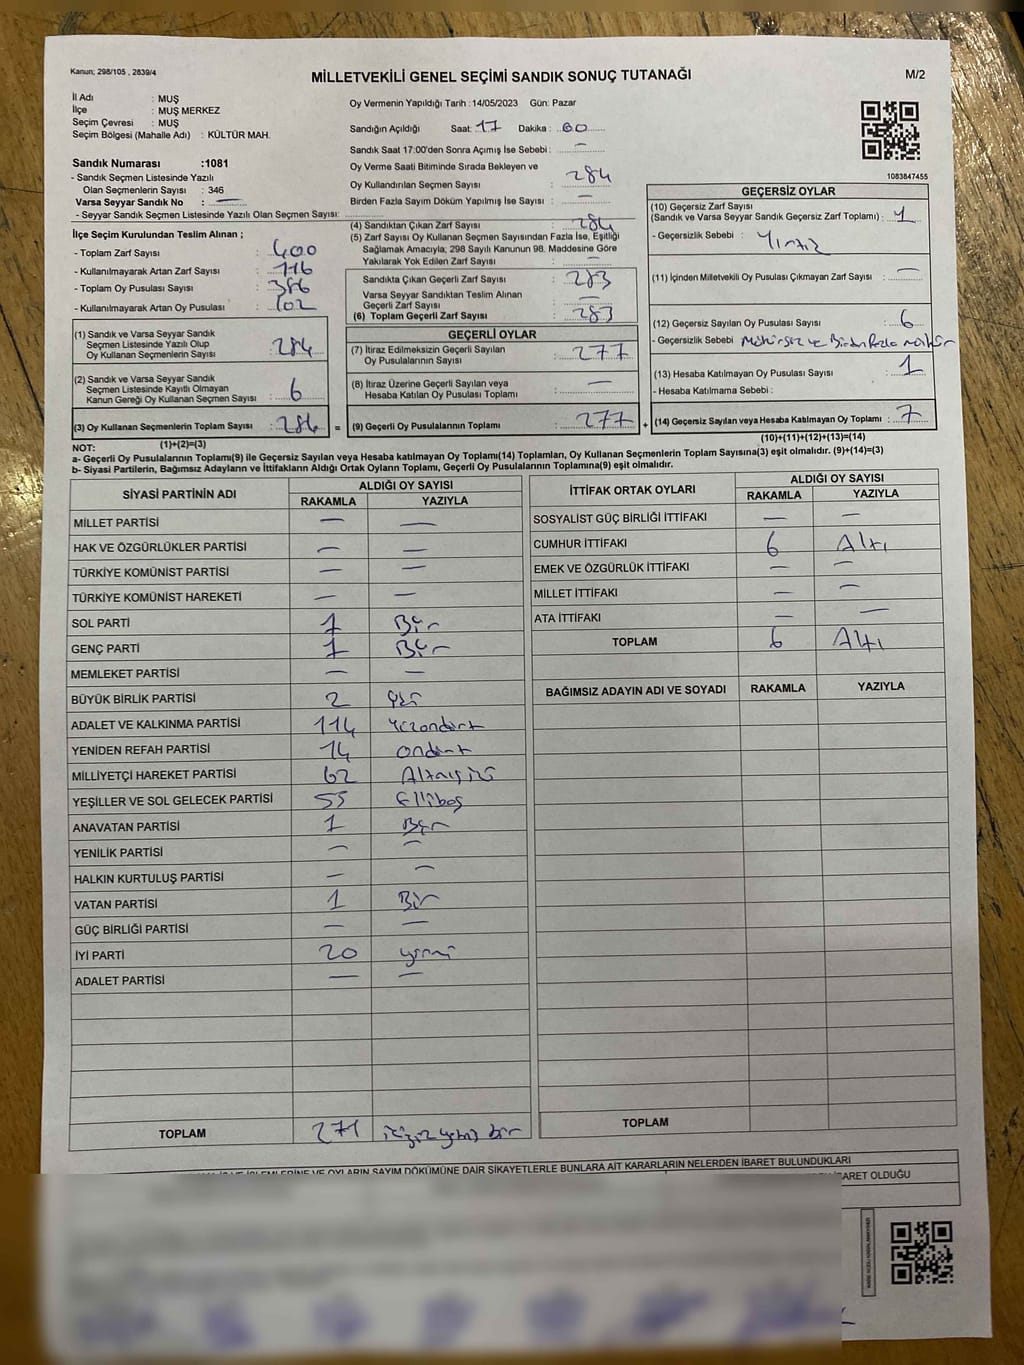 Kanun; 298/105 , 2839/4
MİLLETVEKİLİ GENEL SEÇİMİ SANDIK SONUÇ TUTANAĞI
M/2
İl Adı : MUŞ
İlçe : MUŞ MERKEZ
Seçim Çevresi : MUŞ
Seçim Bölgesi (Mahalle Adı) : KÜLTÜR MAH.
Sandık Numarası :1081
- Sandık Seçmen Listesinde Yazılı
Olan Seçmenlerin Sayısı : 346
Varsa Seyyar Sandık No : —
- Seyyar Sandık Seçmen Listesinde Yazılı Olan Seçmen Sayısı:
Oy Vermenin Yapıldığı Tarih :14/05/2023 Gün: Pazar
Sandığın Açıldığı Saat: 17 Dakika : 00
Sandık Saat 17:00'den Sonra Açımış İse Sebebi : —
Oy Verme Saati Bitiminde Sırada Bekleyen ve
Oy Kullandırılan Seçmen Sayısı : 284
Birden Fazla Sayım Döküm Yapılmış İse Sayısı : —
1083847455
İlçe Seçim Kurulundan Teslim Alınan ;
- Toplam Zarf Sayısı : 400
- Kullanılmayarak Artan Zarf Sayısı : 116
- Toplam Oy Pusulası Sayısı : 386
- Kullanılmayarak Artan Oy Pusulası : 102
(1) Sandık ve Varsa Seyyar Sandık
Seçmen Listesinde Yazılı Olup
Oy Kullanan Seçmenlerin Sayısı : 284
(2) Sandık ve Varsa Seyyar Sandık
Seçmen Listesinde Kayıtlı Olmayan
Kanun Gereği Oy Kullanan Seçmen Sayısı : 6
(3) Oy Kullanan Seçmenlerin Toplam Sayısı : 284
(1)+(2)=(3)
(4) Sandıktan Çıkan Zarf Sayısı : 284
(5) Zarf Sayısı Oy Kullanan Seçmen Sayısından Fazla İse, Eşitliği
Sağlamak Amacıyla; 298 Sayılı Kanunun 98. Maddesine Göre
Yakılarak Yok Edilen Zarf Sayısı : —
Sandıkta Çıkan Geçerli Zarf Sayısı : 283
Varsa Seyyar Sandıktan Teslim Alınan
Geçerli Zarf Sayısı : —
(6) Toplam Geçerli Zarf Sayısı : 283
GEÇERLİ OYLAR
(7) İtiraz Edilmeksizin Geçerli Sayılan
Oy Pusulalarının Sayısı : 277
(8) İtiraz Üzerine Geçerli Sayılan veya
Hesaba Katılan Oy Pusulası Toplamı : —
= (9) Geçerli Oy Pusulasının Toplamı : 277 +
GEÇERSİZ OYLAR
(10) Geçersiz Zarf Sayısı
(Sandık ve Varsa Seyyar Sandık Geçersiz Zarf Toplamı) : 1
- Geçersizlik Sebebi : Yırtız
(11) İçinden Milletvekili Oy Pusulası Çıkmayan Zarf Sayısı : —
(12) Geçersiz Sayılan Oy Pusulası Sayısı : 6
- Geçersizlik Sebebi Mühürsüz ve Birden fazla mühür
(13) Hesaba Katılmayan Oy Pusulası Sayısı : 1
- Hesaba Katılmama Sebebi :
(14) Geçersiz Sayılan veya Hesaba Katılmayan Oy Toplamı : 7
(10)+(11)+(12)+(13)=(14)
NOT:
a- Geçerli Oy Pusulalarının Toplamı(9) ile Geçersiz Sayılan veya Hesaba katılmayan Oy Toplamı(14) Toplamları, Oy Kullanan Seçmenlerin Toplam Sayısına(3) eşit olmalıdır. (9)+(14)=(3)
b- Siyasi Partilerin, Bağımsız Adayların ve İttifakların Aldığı Ortak Oyların Toplamı, Geçerli Oy Pusulalarının Toplamına(9) eşit olmalıdır.
SİYASİ PARTİNİN ADI ALDIĞI OY SAYISI
RAKAMLA YAZIYLA
MİLLET PARTİSİ — —
HAK VE ÖZGÜRLÜKLER PARTİSİ — —
TÜRKİYE KOMÜNİST PARTİSİ — —
TÜRKİYE KOMÜNİST HAREKETİ — —
SOL PARTİ 1 Bir
GENÇ PARTİ 1 Bir
MEMLEKET PARTİSİ — —
BÜYÜK BİRLİK PARTİSİ 2 iki
ADALET VE KALKINMA PARTİSİ 114 Yüzondört
YENİDEN REFAH PARTİSİ 14 ondört
MİLLİYETÇİ HAREKET PARTİSİ 62 Altmışiki
YEŞİLLER VE SOL GELECEK PARTİSİ 55 Ellibeş
ANAVATAN PARTİSİ 1 Bir
YENİLİK PARTİSİ — —
HALKIN KURTULUŞ PARTİSİ — —
VATAN PARTİSİ 1 Bir
GÜÇ BİRLİĞİ PARTİSİ — —
İYİ PARTİ 20 yirmi
ADALET PARTİSİ — —
TOPLAM 271 ikiyüz yetmiş bir
İTTİFAK ORTAK OYLARI ALDIĞI OY SAYISI
RAKAMLA YAZIYLA
SOSYALİST GÜÇ BİRLİĞİ İTTİFAKI — —
CUMHUR İTTİFAKI 6 Altı
EMEK VE ÖZGÜRLÜK İTTİFAKI — —
MİLLET İTTİFAKI — —
ATA İTTİFAKI — —
TOPLAM 6 Altı
BAĞIMSIZ ADAYIN ADI VE SOYADI RAKAMLA YAZIYLA
TOPLAM
İŞLEMLERİNE VE OYLARIN SAYIM DÖKÜMÜNE DAİR ŞİKAYETLERLE BUNLARA AİT KARARLARIN NELERDEN İBARET BULUNDUKLARI
İBARET OLDUĞU